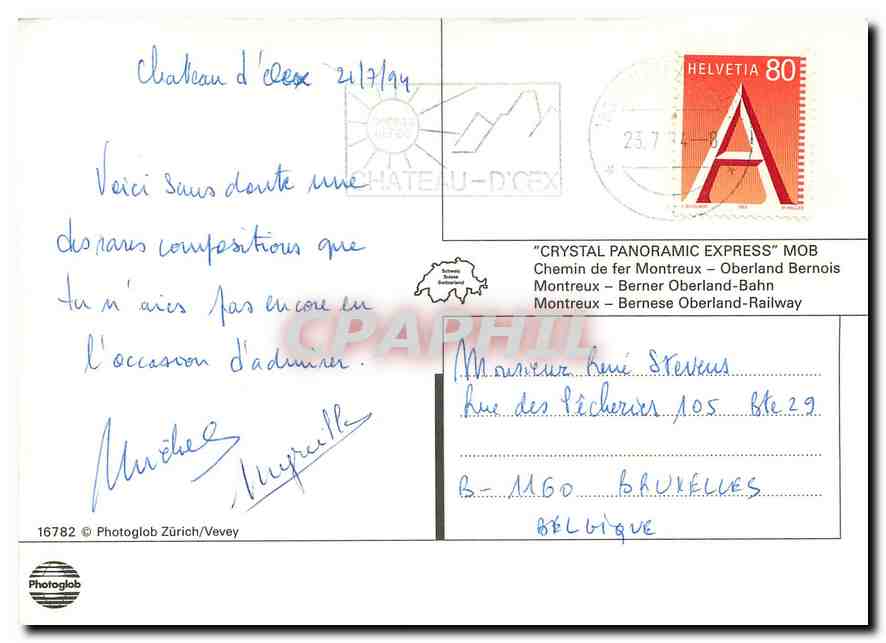 Chateau d'Oex 21/7/94
Voici sans doute une
des rares compositions que
tu n'aies pas encore eu
l'occasion d'admirer.
Michel
16782 © Photoglob Zürich/Vevey
Photoglob
CHATEAU-D'OEX
23.7.94-8
HELVETIA 80
A
"CRYSTAL PANORAMIC EXPRESS" MOB
Chemin de fer Montreux – Oberland Bernois
Montreux – Berner Oberland-Bahn
Montreux – Bernese Oberland-Railway
Schweiz
Suisse
Switzerland
CPAPHIL
Monsieur René Stevens
Rue des Pêcheries 105 Bte 29
B-1160 BRUXELLES
BELGIQUE